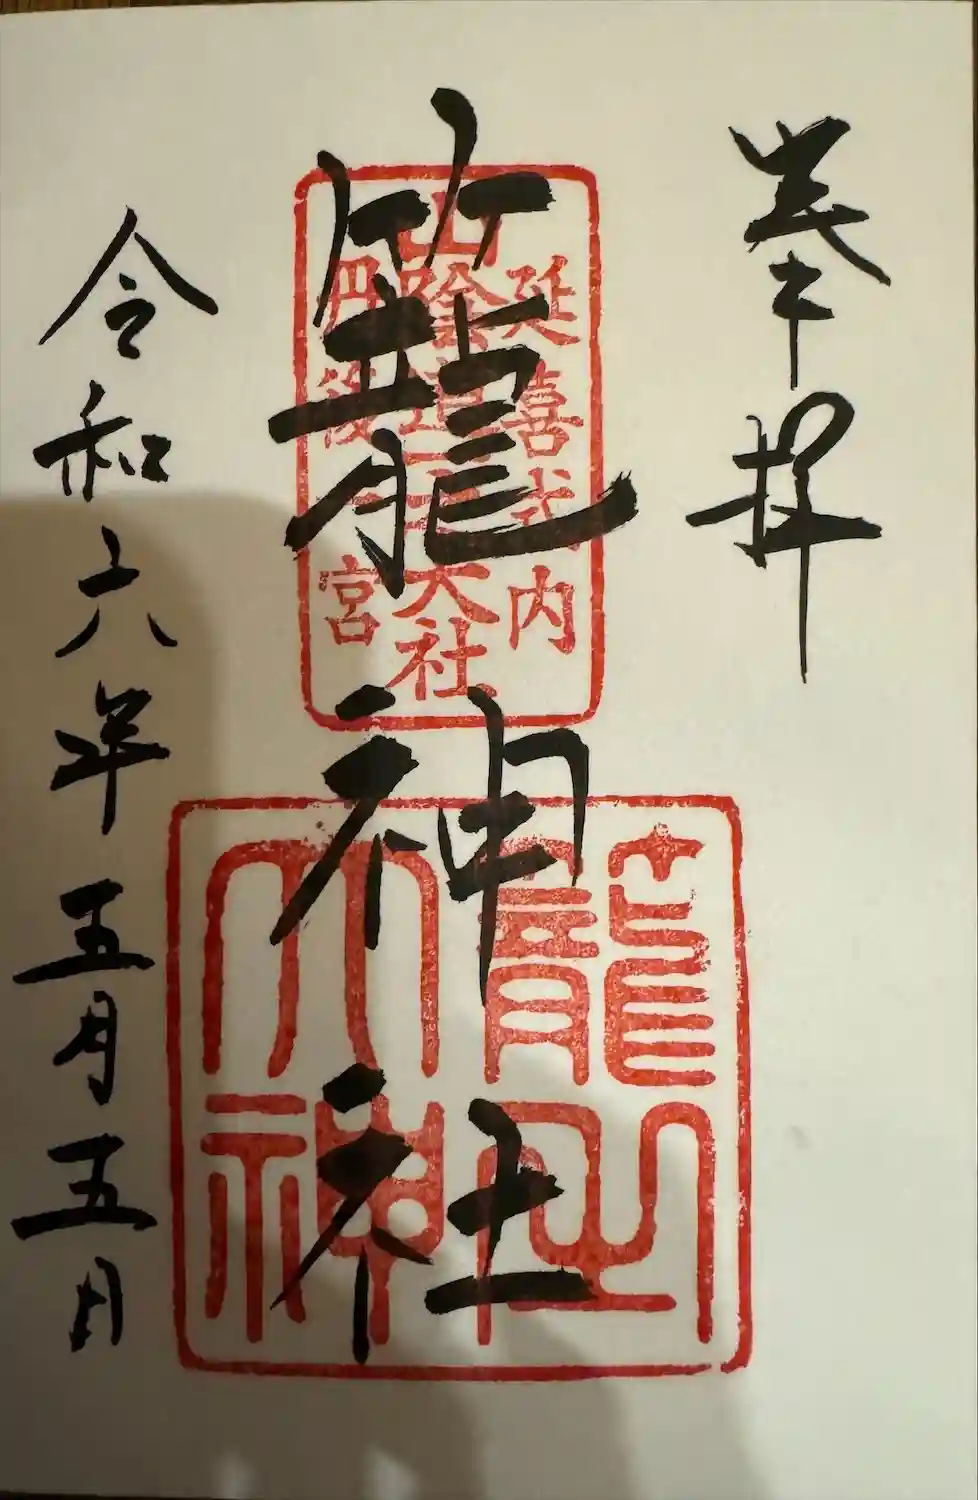 奉拝
延喜式内
山陰道 大社
丹後一宮
籠神社
籠之大神
令和六年五月五日